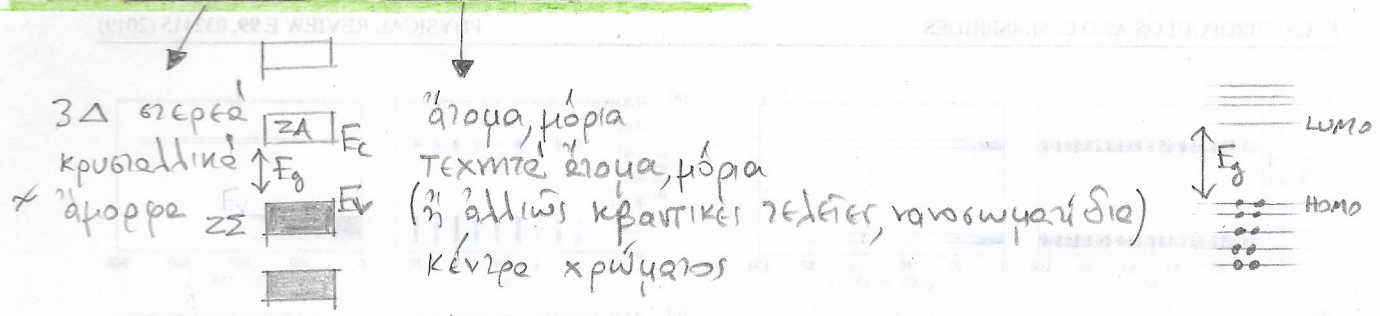 3Δ στερεὰ
κρυσταλλικὰ
ἄμορφα
ΖΑ
Ec
Eg
Ev
ΖΣ
ἄτομα, μόρια
τεχνητὰ ἄτομα, μόρια
(ἢ ἀλλιῶς κβαντικὲς τελεῖες, νανοσωματίδια)
κέντρα χρώματος
LUMO
Eg
HOMO